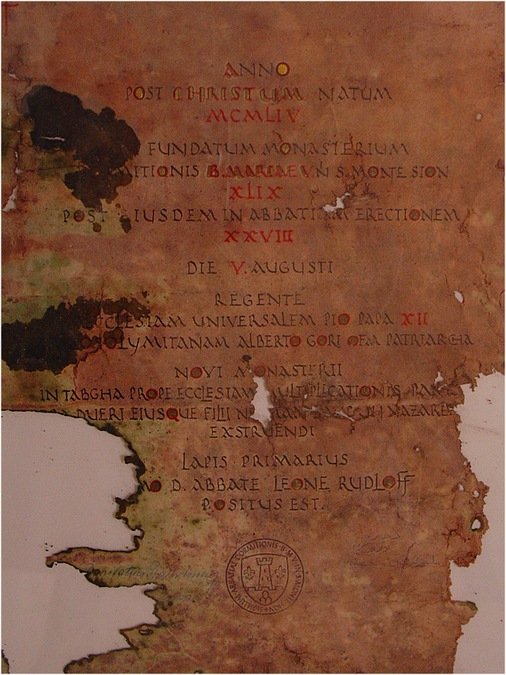 ANNO
POST CHRISTUM NATUM
MCMLIV
FUNDATUM MONASTERIUM
MITIONIS B. MARIAE VN S. MONTE SION
XLIX
POST EIUSDEM IN ABBATIAM ERECTIONEM
XXVIII
DIE V. AUGUSTI
REGENTE
ECCLESIAM UNIVERSALEM PIO PAPA XII
OLYMITANAM ALBERTO GORI OFM PATRIARCHA
NOVI MONASTERII
IN TABGHA PROPE ECCLESIAM MULTIPLICATIONIS
PUERI EIUSQUE FILII NAZARE
EXSTRUENDI
LAPIS PRIMARIUS
D. ABBATE LEONE RUDLOFF
POSITUS EST.